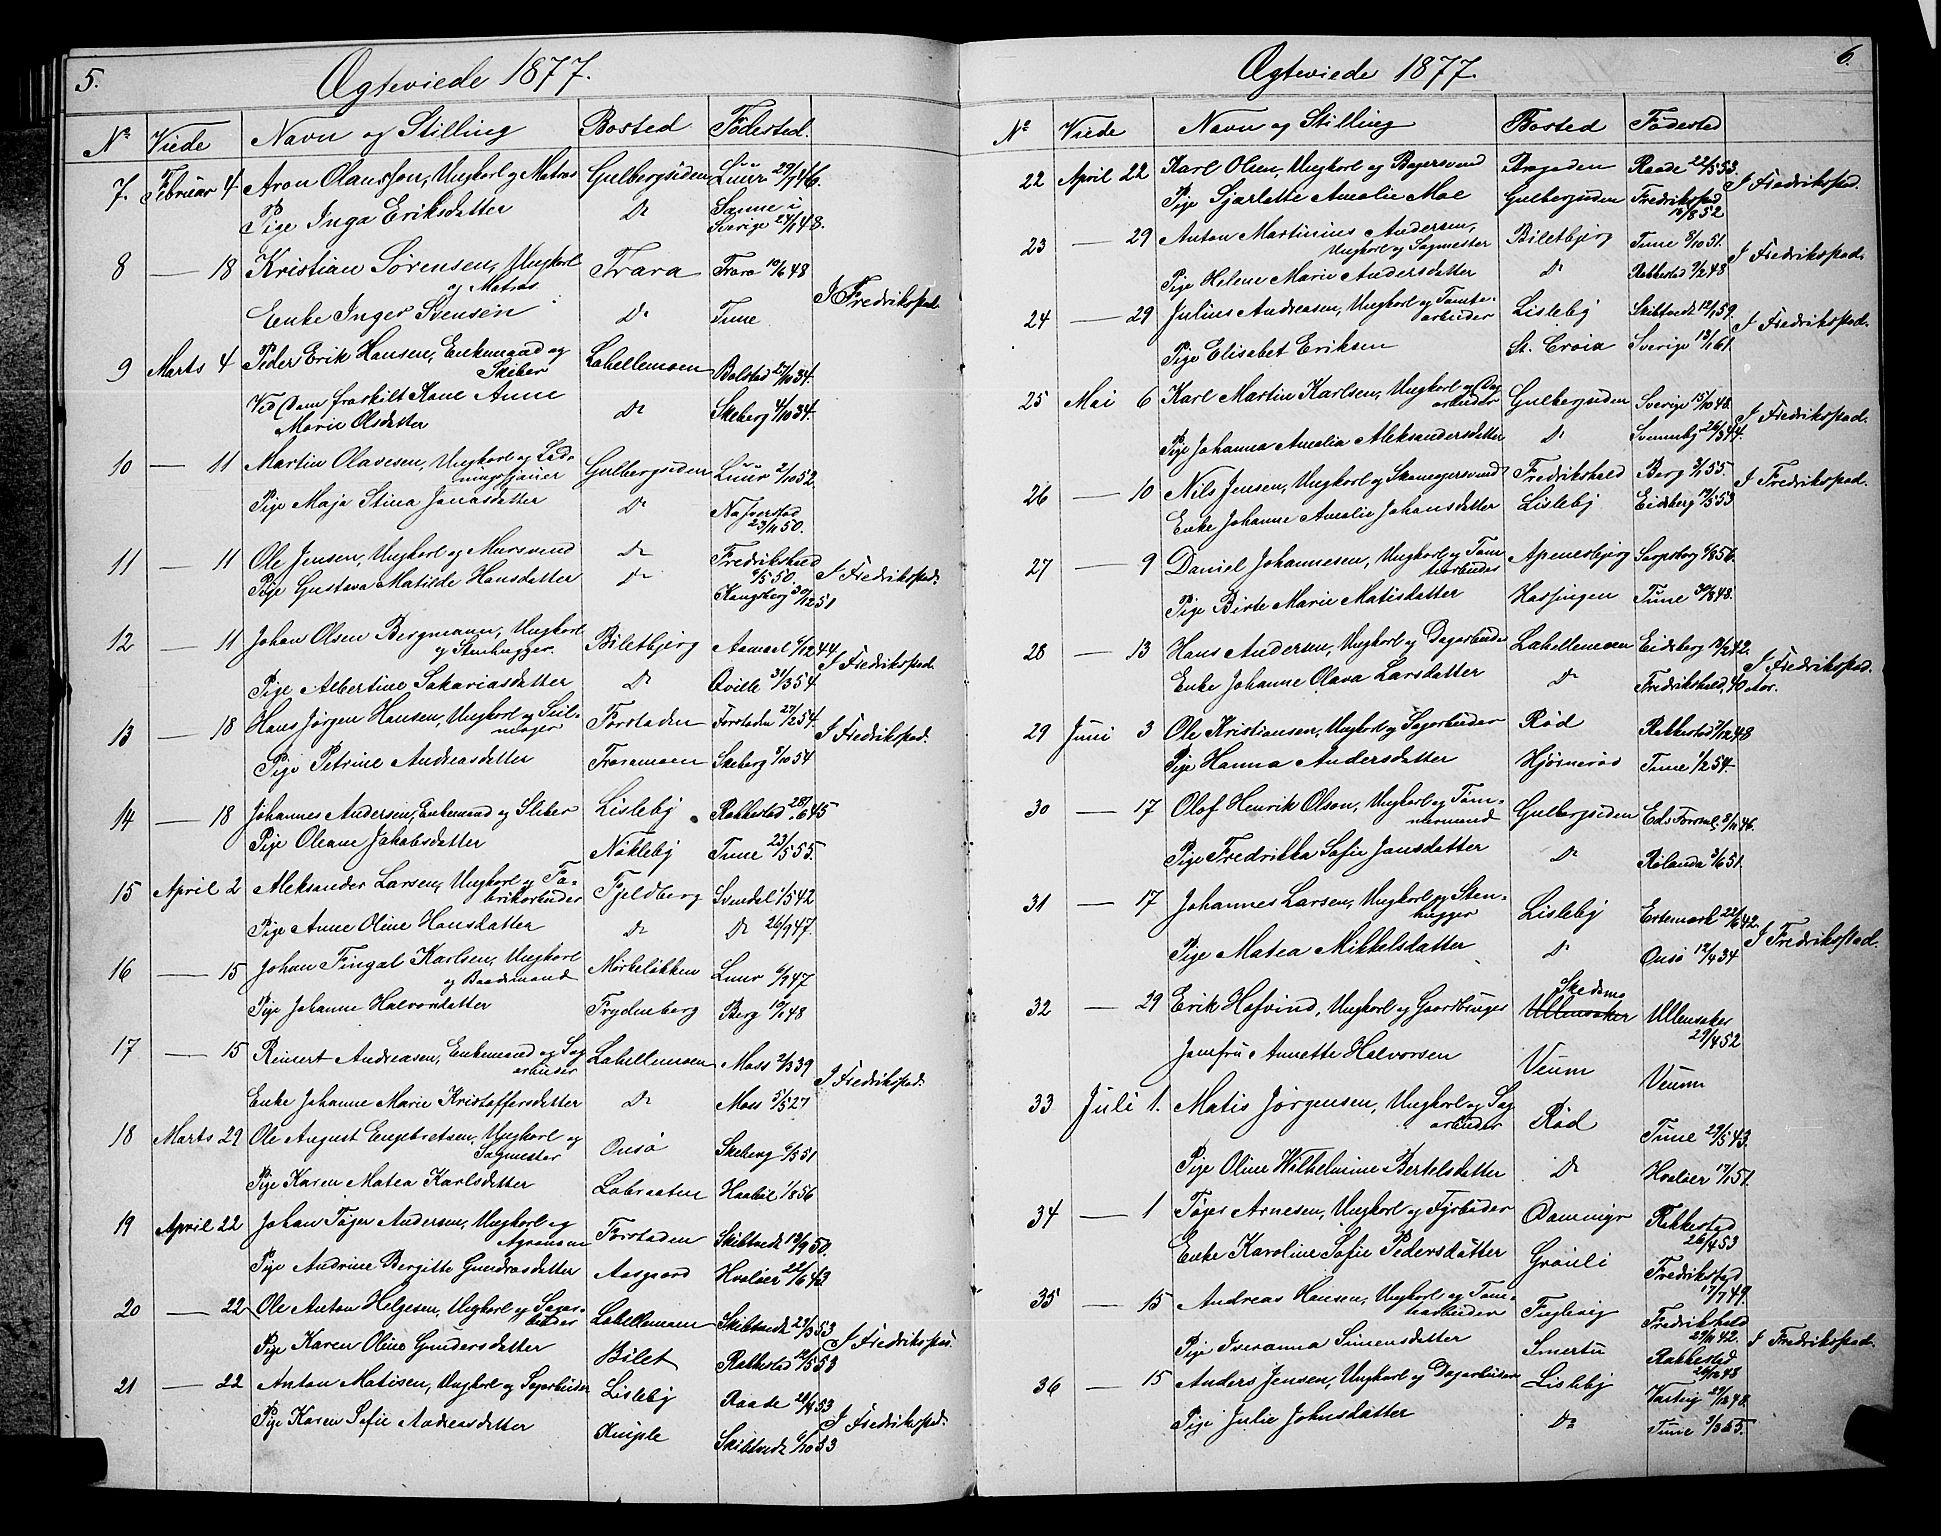 5.
Ægteviede 1877.
No Viede Navn og Stilling Bosted Fødested.
7. Februar 4 Aron Olausson, Ungkarl og Matros Gulbergsiden Luur 29/7 46.
Pige Inga Eriksdatter Do Sanne i Sverige 24/1 48.
8 — 18 Kristian Sørensen, Ungkarl og Matros Trara Trara 10/6 48
Enke Inger Svensen Do Tune I Fredrikstad.
9 Marts 4 Peder Erik Hansen, Enkemand og Skiber Labellemoen Bolstad 27/10 34.
Vid (Dom fraskilt Kone Anne Marie Olsdatter Do Skeberg 4/10 34.
10 — 11 Martin Olavesen, Ungkarl og Ladningskjører Gulbergsiden Luur 2/10 52
Pige Maja Stina Jonasdatter Do Nafverstad 23/11 50.
11 — 11 Ole Jensen, Ungkarl og Mursvend Do Fredrikshald 6/5 50.
Pige Gustava Matilde Hansdatter Do Kongsberg 30/12 51 I Fredrikstad.
12 — 11 Johan Olsen Bergmann, Ungkarl og Stenhugger. Biletbjerg Aamoel 6/12 44
Pige Albertine Sakariasdatter Do Qville 31/3 54 I Fredrikstad.
13 — 18 Hans Jørgen Hansen, Ungkarl og Seilmager Forstaden Forstaden 27/2 54. I Fredrikstad.
Pige Petrine Andreasdatter Traramoen Skeberg 5/10 54
14 — 18 Johannes Andersen, Enkemand og Skiber Lisleby Rakkestad 28/6 45
Pige Oleane Jakobsdatter Nøkleby Tune 23/5 55.
15 April 2 Aleksander Larsen, Ungkarl og Fabrikarbeider Fjeldberg Svendal 1/5 42
Pige Anne Oline Hansdatter Do Do 26/9 47.
16 — 15 Johan Fingal Karlsen, Ungkarl og Baadsmand Mørkeløkken Luur 6/9 47
Pige Johanne Halvorsdatter Frydenberg Berg 10/1 48
17 — 15 Reinert Andreasen, Enkemand og Sagarbeider Labellemoen Moss 2/3 39
Enke Johanne Marie Kristoffersdatter Do Moss 5/5 27 I Fredrikstad.
18 Marts 29 Ole August Engebretsen, Ungkarl og Sagmester Onsø Skeberg 6/5 51
Pige Karen Matea Karlsdatter Labraaten Haabøl 1/8 56
19 April 22 Johan Tøger Andersen, Ungkarl og Forstaden Skibtvedt 19/9 50.
Pige Andrine Bergitte Gundrosdatter Aasgaard Hvaløer 22/6 43
20 — 22 Ole Anton Helgesen, Ungkarl og Sagarbeider Labellemoen Skibtvedt 29/3 53
Pige Karen Oline Gundersdatter Bilet Rakkestad 12/5 53 I Fredrikstad.
21 — 22 Anton Matisen, Ungkarl og Sagarbeider Lisleby Raade 28/4 53
Pige Karen Sofie Andreasdatter Kniple Skibtvedt 6/10 53 I Fredrikstad.
6.
Ægteviede 1877.
No Viede Navn og Stilling Bosted Fødested
22 April 22 Karl Olsen, Ungkarl og Bagersvend Brogaden Raade 22/5 53. I Fredrikstad.
Pige Sjarlotte Amalie Moe Gulbergsiden Fredrikstad 15/8 52
23 — 29 Anton Martinius Andersen, Ungkarl og Sagmester Biletbjerg Tune 8/10 51.
Pige Helene Marie Andersdatter Do Rakkestad 9/2 48 I Fredrikstad.
24 — 29 Julius Andreasen, Ungkarl og Tomtearbeider Lisleby Skibtvedt 12/1 59.
Pige Elisabet Eriksen St. Croix Sverige 13/1 61 I Fredrikstad.
25 Mai 6 Karl Martin Karlsen, Ungkarl og Dagarbeider Gulbergsiden Sverige 15/10 48.
Pige Johanna Amalia Aleksandersdatter Do Svenneby 26/3 44. I Fredrikstad.
26 — 10 Nils Jensen, Ungkarl og Skomagersvend Fredrikshald Berg 3/1 55. I Fredrikstad.
Enke Johanne Amalie Johansdatter Lisleby Eidsberg 19/5 53
27 — 9 Daniel Johannesen, Ungkarl og Tomtearbeider Apenesbjerg Sarpsborg 6/8 56.
Pige Birte Marie Matisdatter Hassingen Tune 30/8 48.
28 — 13 Hans Andersen, Ungkarl og Dagarbeider Labellemoen Eidsberg 19/2 42.
Enke Johanne Olava Larsdatter Do Fredrikshald, 40 Aar. I Fredrikstad.
29 Juni 3 Ole Kristiansen, Ungkarl og Sagarbeider Rød Rakkestad 7/12 48
Pige Hanna Andersdatter Hjørnerød Tune 1/2 54.
30 — 17 Olof Henrik Olson, Ungkarl og Tømmermand Gulbergsiden Eds Forsml. 8/11 46.
Pige Fredrikka Sofie Jansdatter Do Rølanda 3/6 51.
31 — 17 Johannes Larsen, Ungkarl og Stenhugger Lisleby Ertemark 22/6 42.
Pige Matea Mikkelsdatter Do Onsø 12/4 34 I Fredrikstad.
32 — 29 Erik Hofvind, Ungkarl og Gaardbruger Skedsmo Ullensaker Ullensaker 29/4 52
Jomfru Annette Halvorsen Veum Veum
33 Juli 1. Matis Jørgensen, Ungkarl og Sagarbeider Rød Tune 29/5 43.
Pige Oline Wilhelmine Bertelsdatter Do Hvaløer 17/1 51.
34 — 1 Tøger Arnesen, Ungkarl og Fyrbøder Dammyr Rakkestad 26/4 53
Enke Karoline Sofie Pedersdatter Grønli Fredrikstad 17/7 49.
35 — 15 Andreas Hansen, Ungkarl og Tomtearbeider Fuglevig Fredrikshald 29/11 42.
Pige Iveranna Simensdatter Smertu Rakkestad 26/12 48 I Fredrikstad.
36 — 15 Anders Jensen, Ungkarl og Dagarbeider Lisleby Varteig 29/12 48.
Pige Julie Johnsdatter Do Tune 3/3 55.